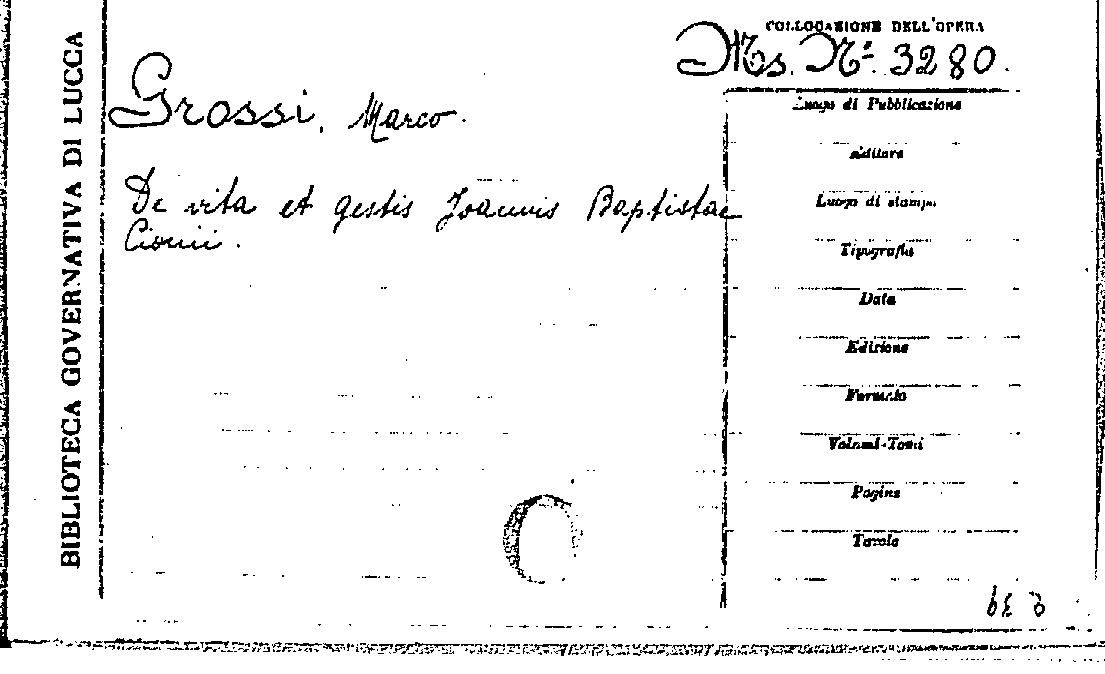 BIBLIOTECA GOVERNATIVA DI LUCCA
COLLOCAZIONE DELL'OPERA
Ms. Nº 3280.
Grossi, Marco.
De vita et gestis Joannis Baptistae
Cionii.
Luogo di Pubblicazione
Editore
Luogo di stampa
Tipografia
Data
Edizione
Formato
Volumi-Tomi
Pagine
Tavole